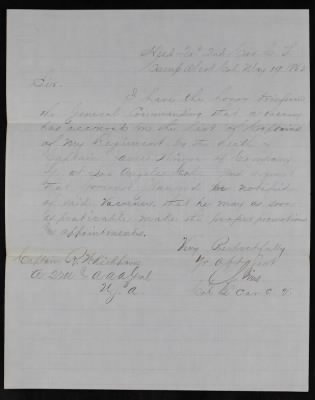 Head Qrs 2nd Cav C. V.
Camp Alert Cal May 19, 186
Sir.
I have the honor to inform
the General Commanding that a vacancy
has occurred in the list of Captains
of my Regiment by the death of
Captain of Company
at Los Angeles Cal. and request
that Governor be notified
of said vacancy, that he may as soon
as practicable make the proper promotion
& appointments.
Very Respectfully
Yr Obt Svt
Sims
Col 2 Cav C. V.
Captain
A A A Genl